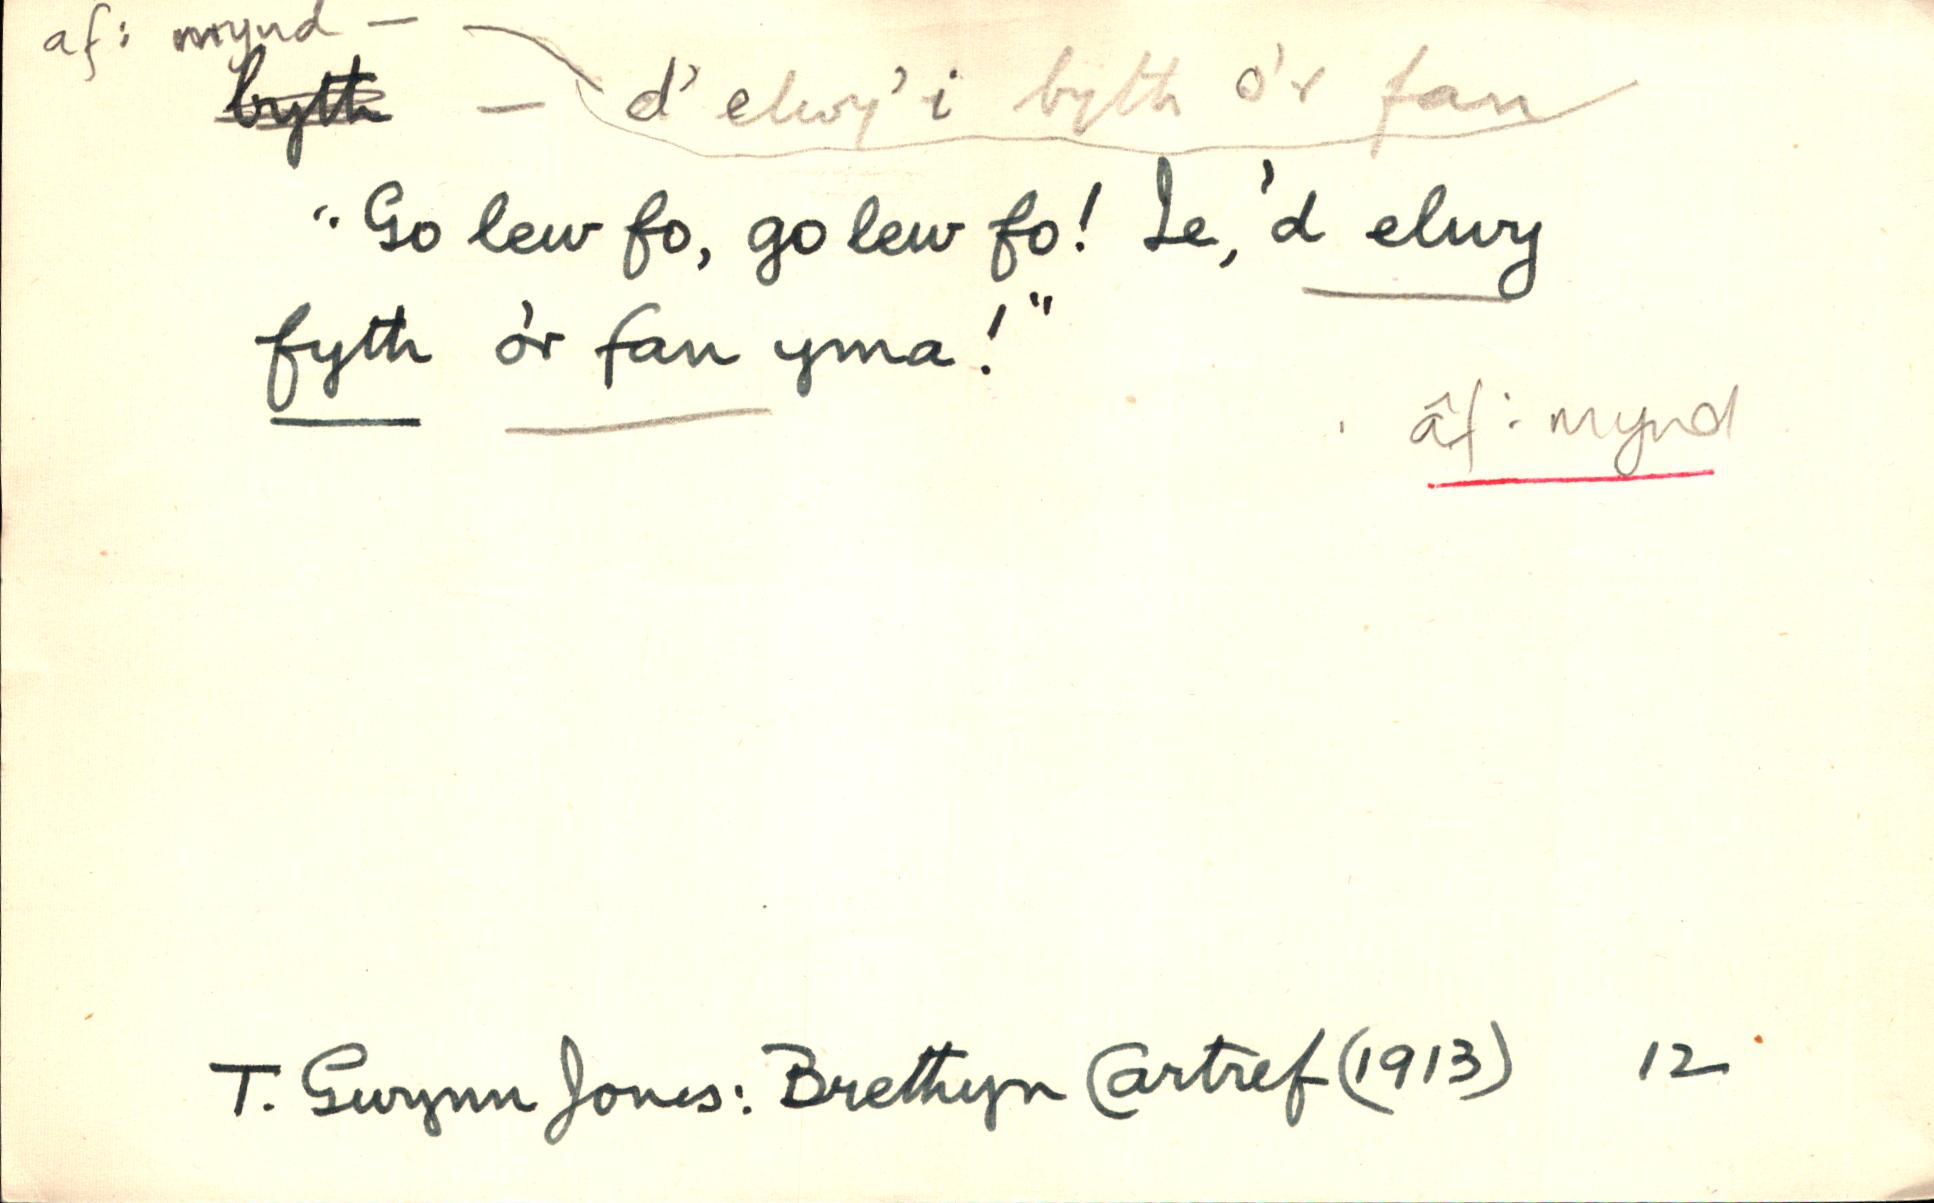 af: mynd —
byth — d'elwy'i byth o'r fan
"Go lew fo, go lew fo! Ie, 'd elwy
fyth o'r fan yma!"
âf: mynd
T. Gwynn Jones: Brethyn Cartref (1913) 12